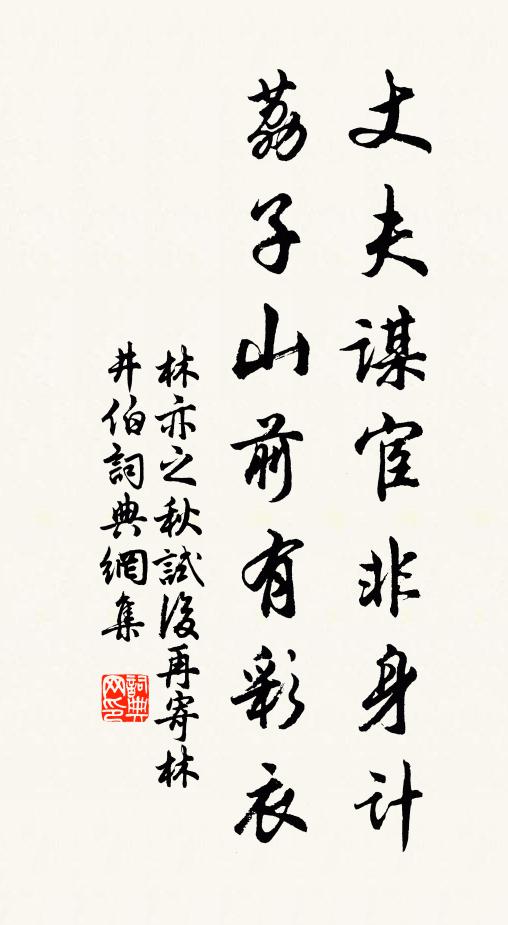 丈夫謀宦非身計
荔子山前有彩衣
林亦之秋試後再寄林
井伯詞典網集
詞典
网印